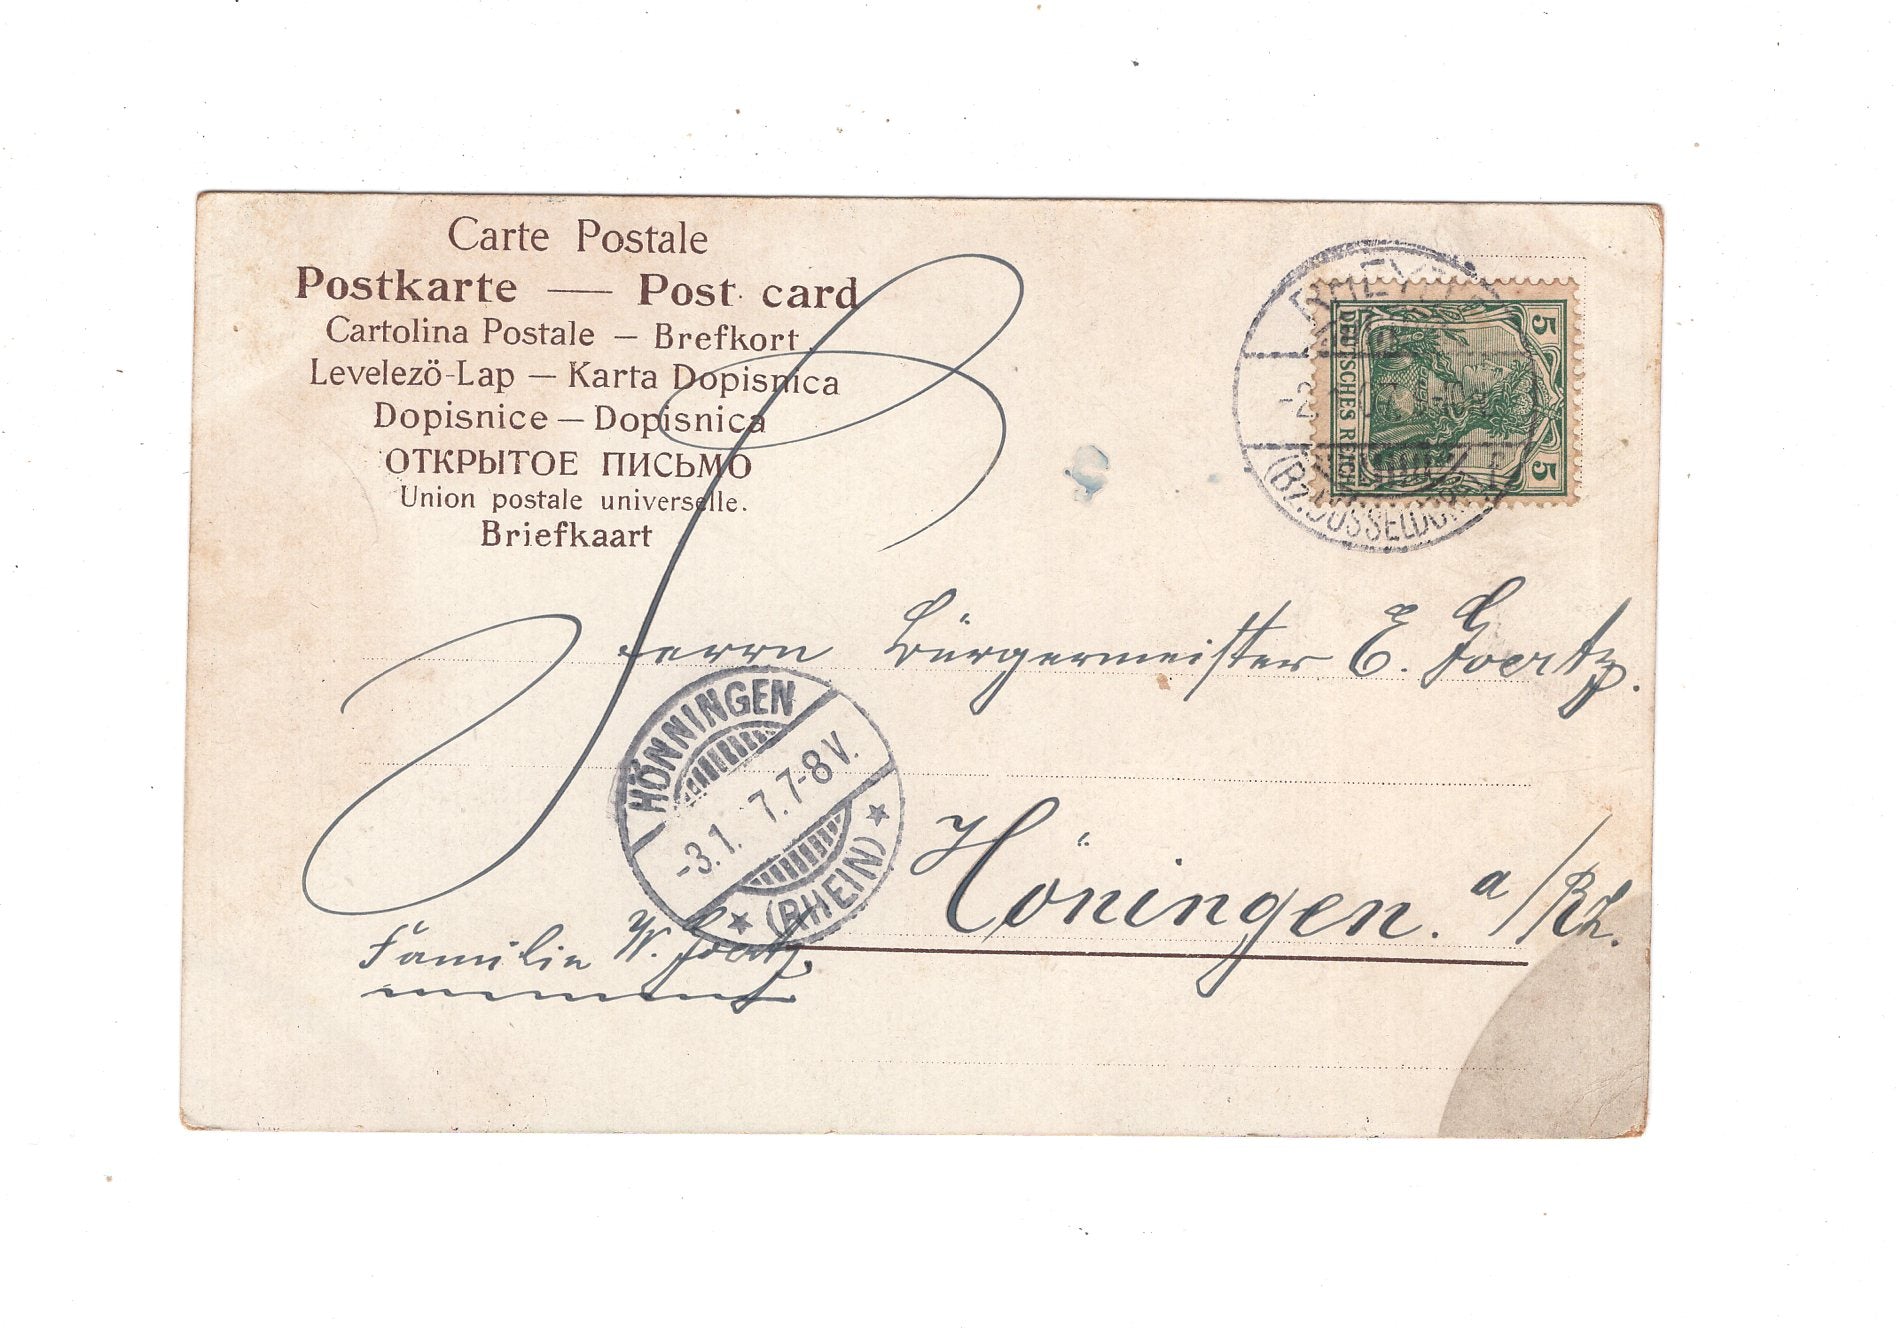 Carte Postale
Postkarte — Post card
Cartolina Postale — Brefkort.
Levelezö-Lap — Karta Dopisnica
Dopisnice — Dopisnica
ОТКРЫТОЕ ПИСЬМО
Union postale universelle.
Briefkaart
5 DEUTSCHES REICH 5
(Bz. DÜSSELDORF)
Herrn Bürgermeister E. Goertz.
HÖNNINGEN
-3.1. 7. 7-8 V.
(RHEIN)
Höningen. a/Rh.
Familie W. Goertz.